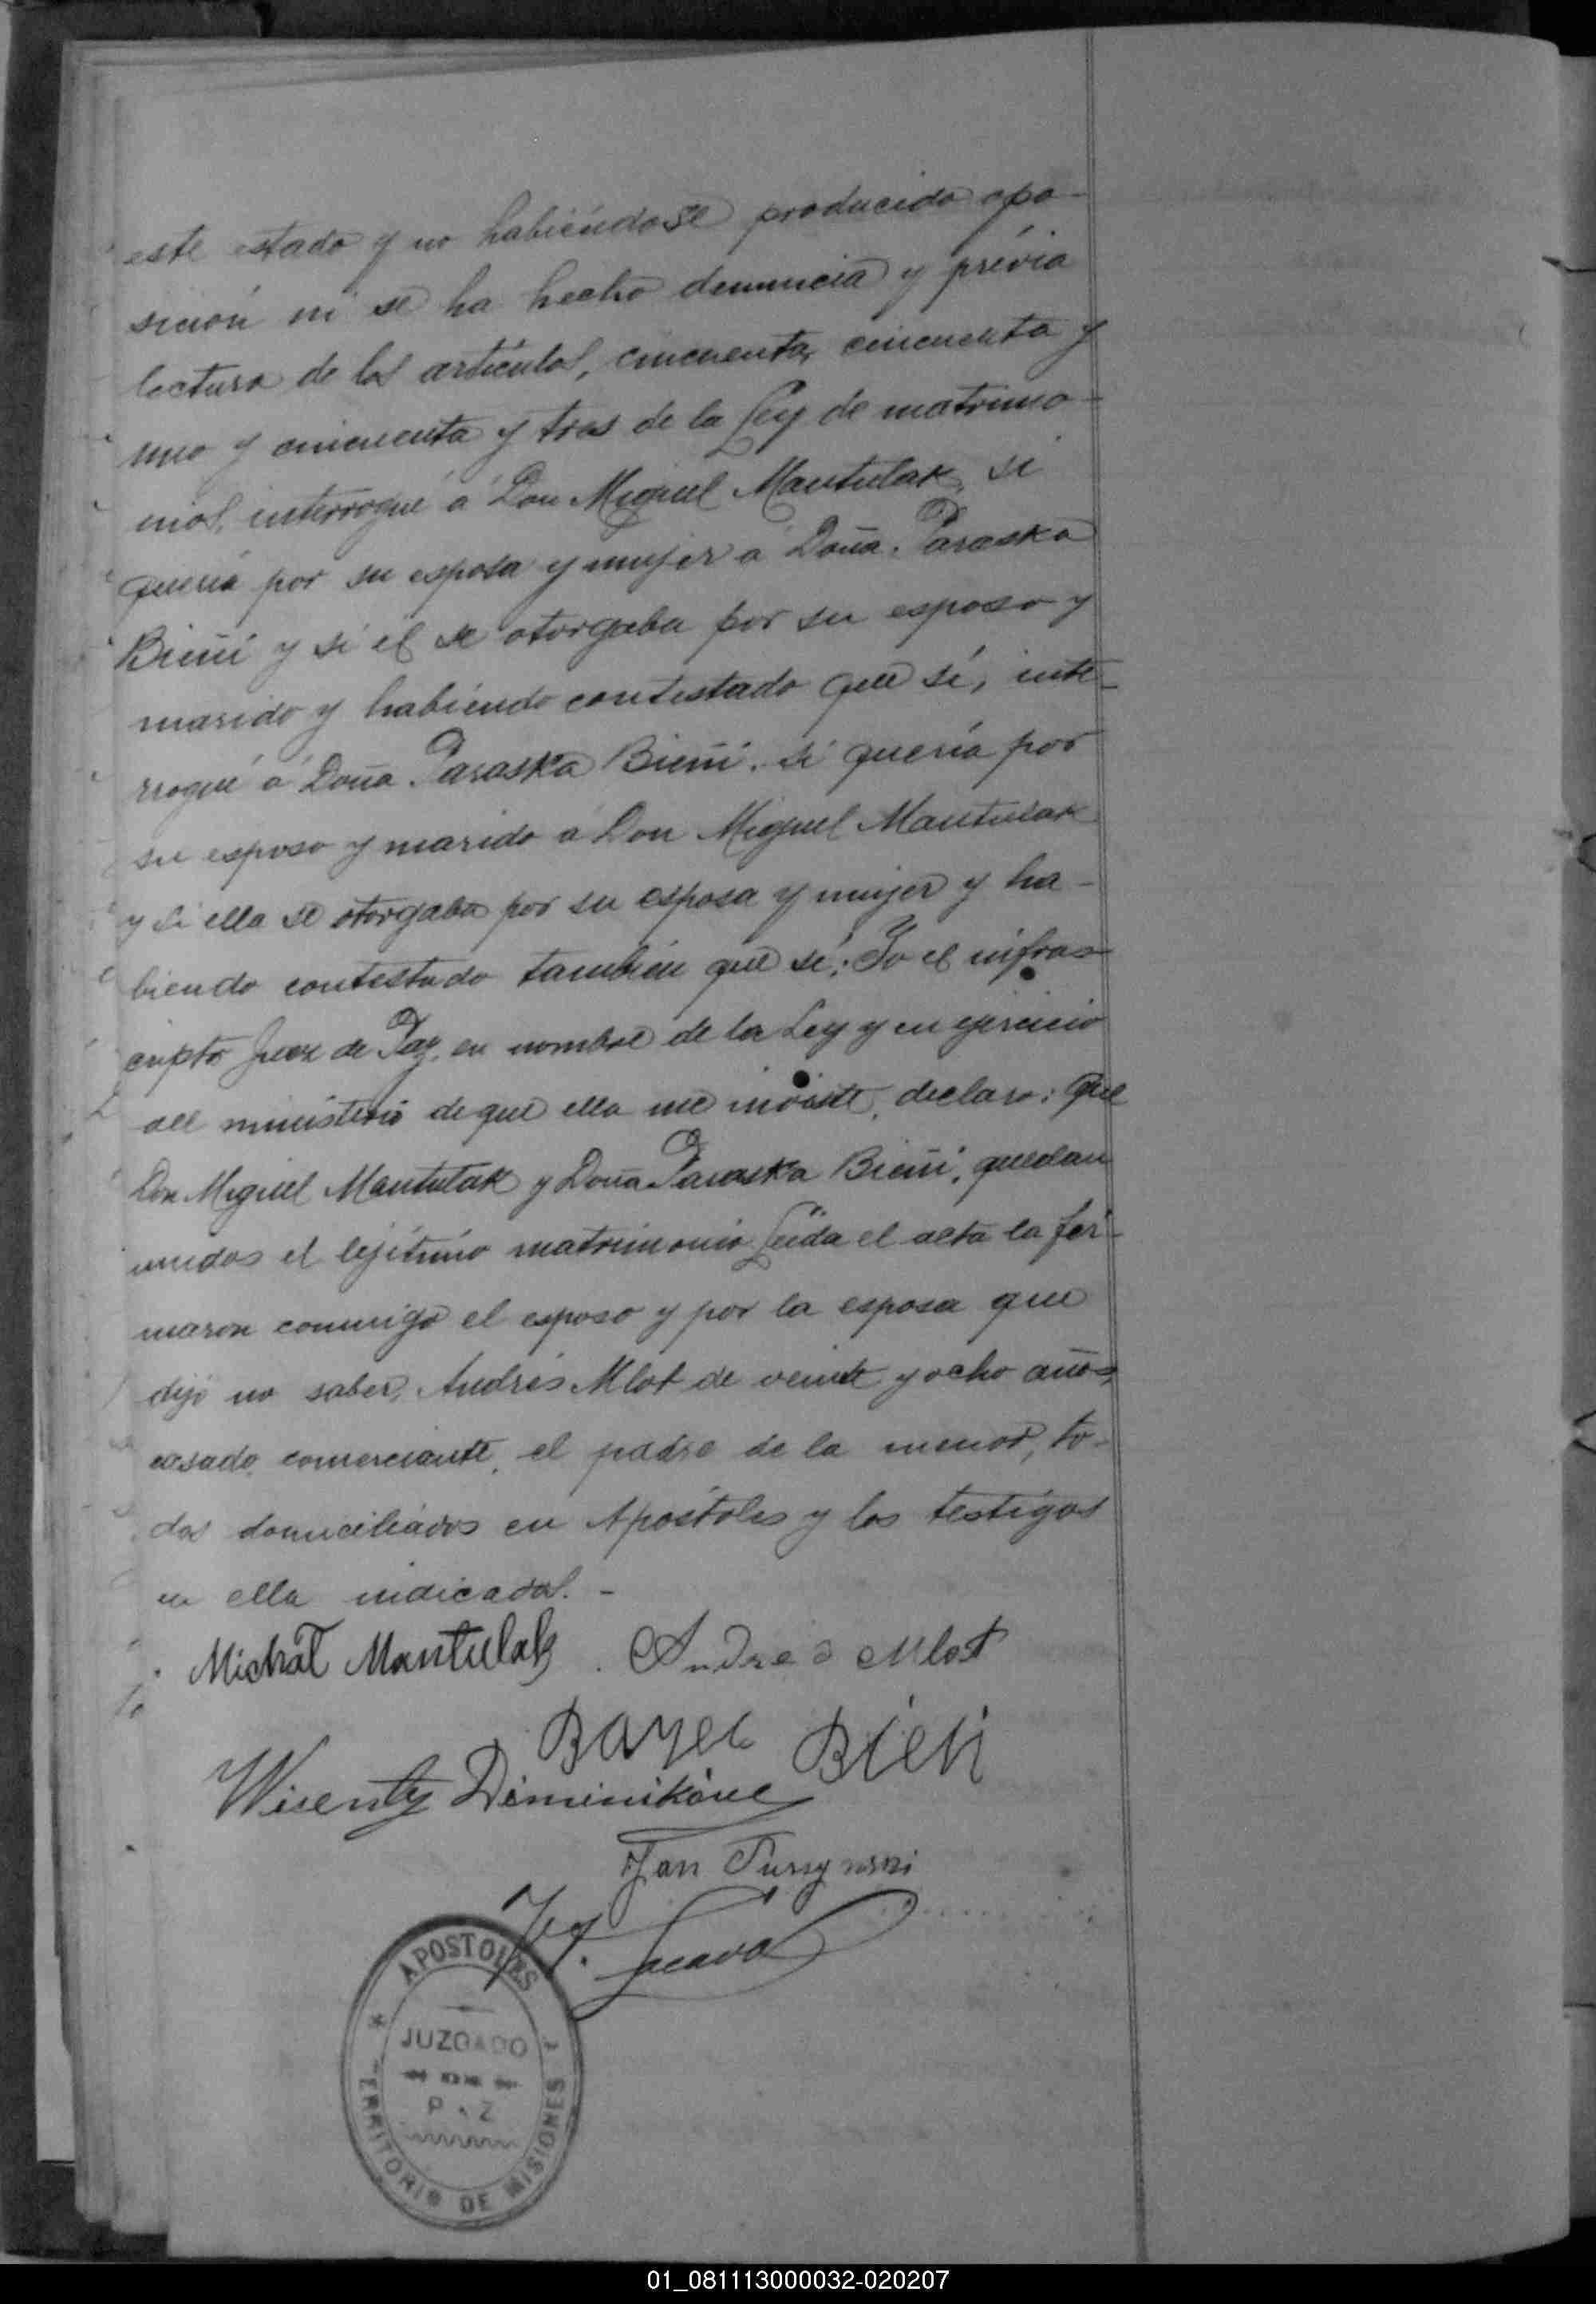 este estado y no habiéndose producido opo-
sición ni se ha hecho denuncia y prévia
lectura de los artículos, cincuenta, cincuenta y
uno y cincuenta y tres de la Ley de matrimo-
nios, interrogué á Don Miguel Mantulak, si
quería por su esposa y mujer a Doña Paraska
Bieñi y si él se otorgaba por su esposo y
marido y habiéndo contestado que sí, inte-
rrogué á Doña Paraska Bieñi, si quería por
su esposo y marido a Don Miguel Mantulak
y si ella se otorgaba por su esposa y mujer y ha-
biendo contestado también que sí; Yo el infras-
cripto Juez de Paz, en nombre de la Ley y en ejercicio
del ministerio de que ella me inviste, declaro: que
Don Miguel Mantulak y Doña Paraska Bieñi, quedan
unidos el lejítimo matrimonio Leída el acta la fir-
maron conmigo el esposo y por la esposa que
dijo no saber, Andrés Mlot de veinte y ocho años,
casado, comerciante, el padre de la menor, to-
dos domiciliados en Apóstoles y los testigos
en ella indicados. -
Michał Mantulak Andres Mlot
Bień
Wicenty
Jan
APOSTOLES
JUZGADO
DE
PAZ
TERRITORIO DE MISIONES
01_081113000032-020207